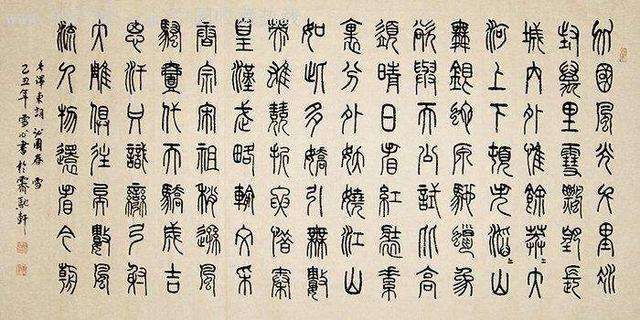 北國風光千里冰
封萬里雪飄望長
城內外惟餘莽〻大
河上下頓失滔〻山
舞銀蛇原馳蠟象
欲與天公試比高
須晴日看紅裝素
裹分外妖嬈江山
如此多嬌引無數
英雄競折腰惜秦
皇漢武略輸文采
唐宗宋祖稍遜風
騷一代天驕成吉
思汗只識彎弓射
大雕俱往矣數風
流人物還看今朝
毛澤東詞 沁園春 雪
己丑年 雪心書於 軒